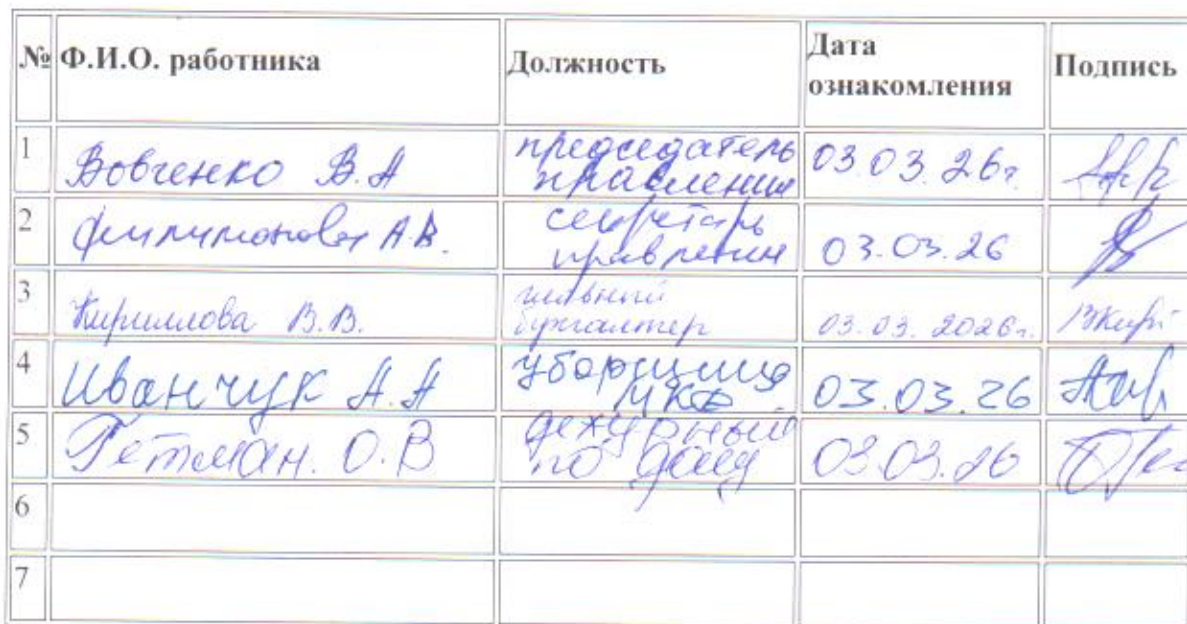 № Ф.И.О. работника Должность Дата ознакомления Подпись
1 Вовченко В.А председатель правления 03.03.26г.
2 Филимонова А.В. секретарь правления 03.03.26
3 Кириллова В.В. главный бухгалтер 03.03.2026г.
4 Иванчук А.А уборщица МКД 03.03.26
5 Гетман. О.В дежурный по дому 03.03.26
6
7